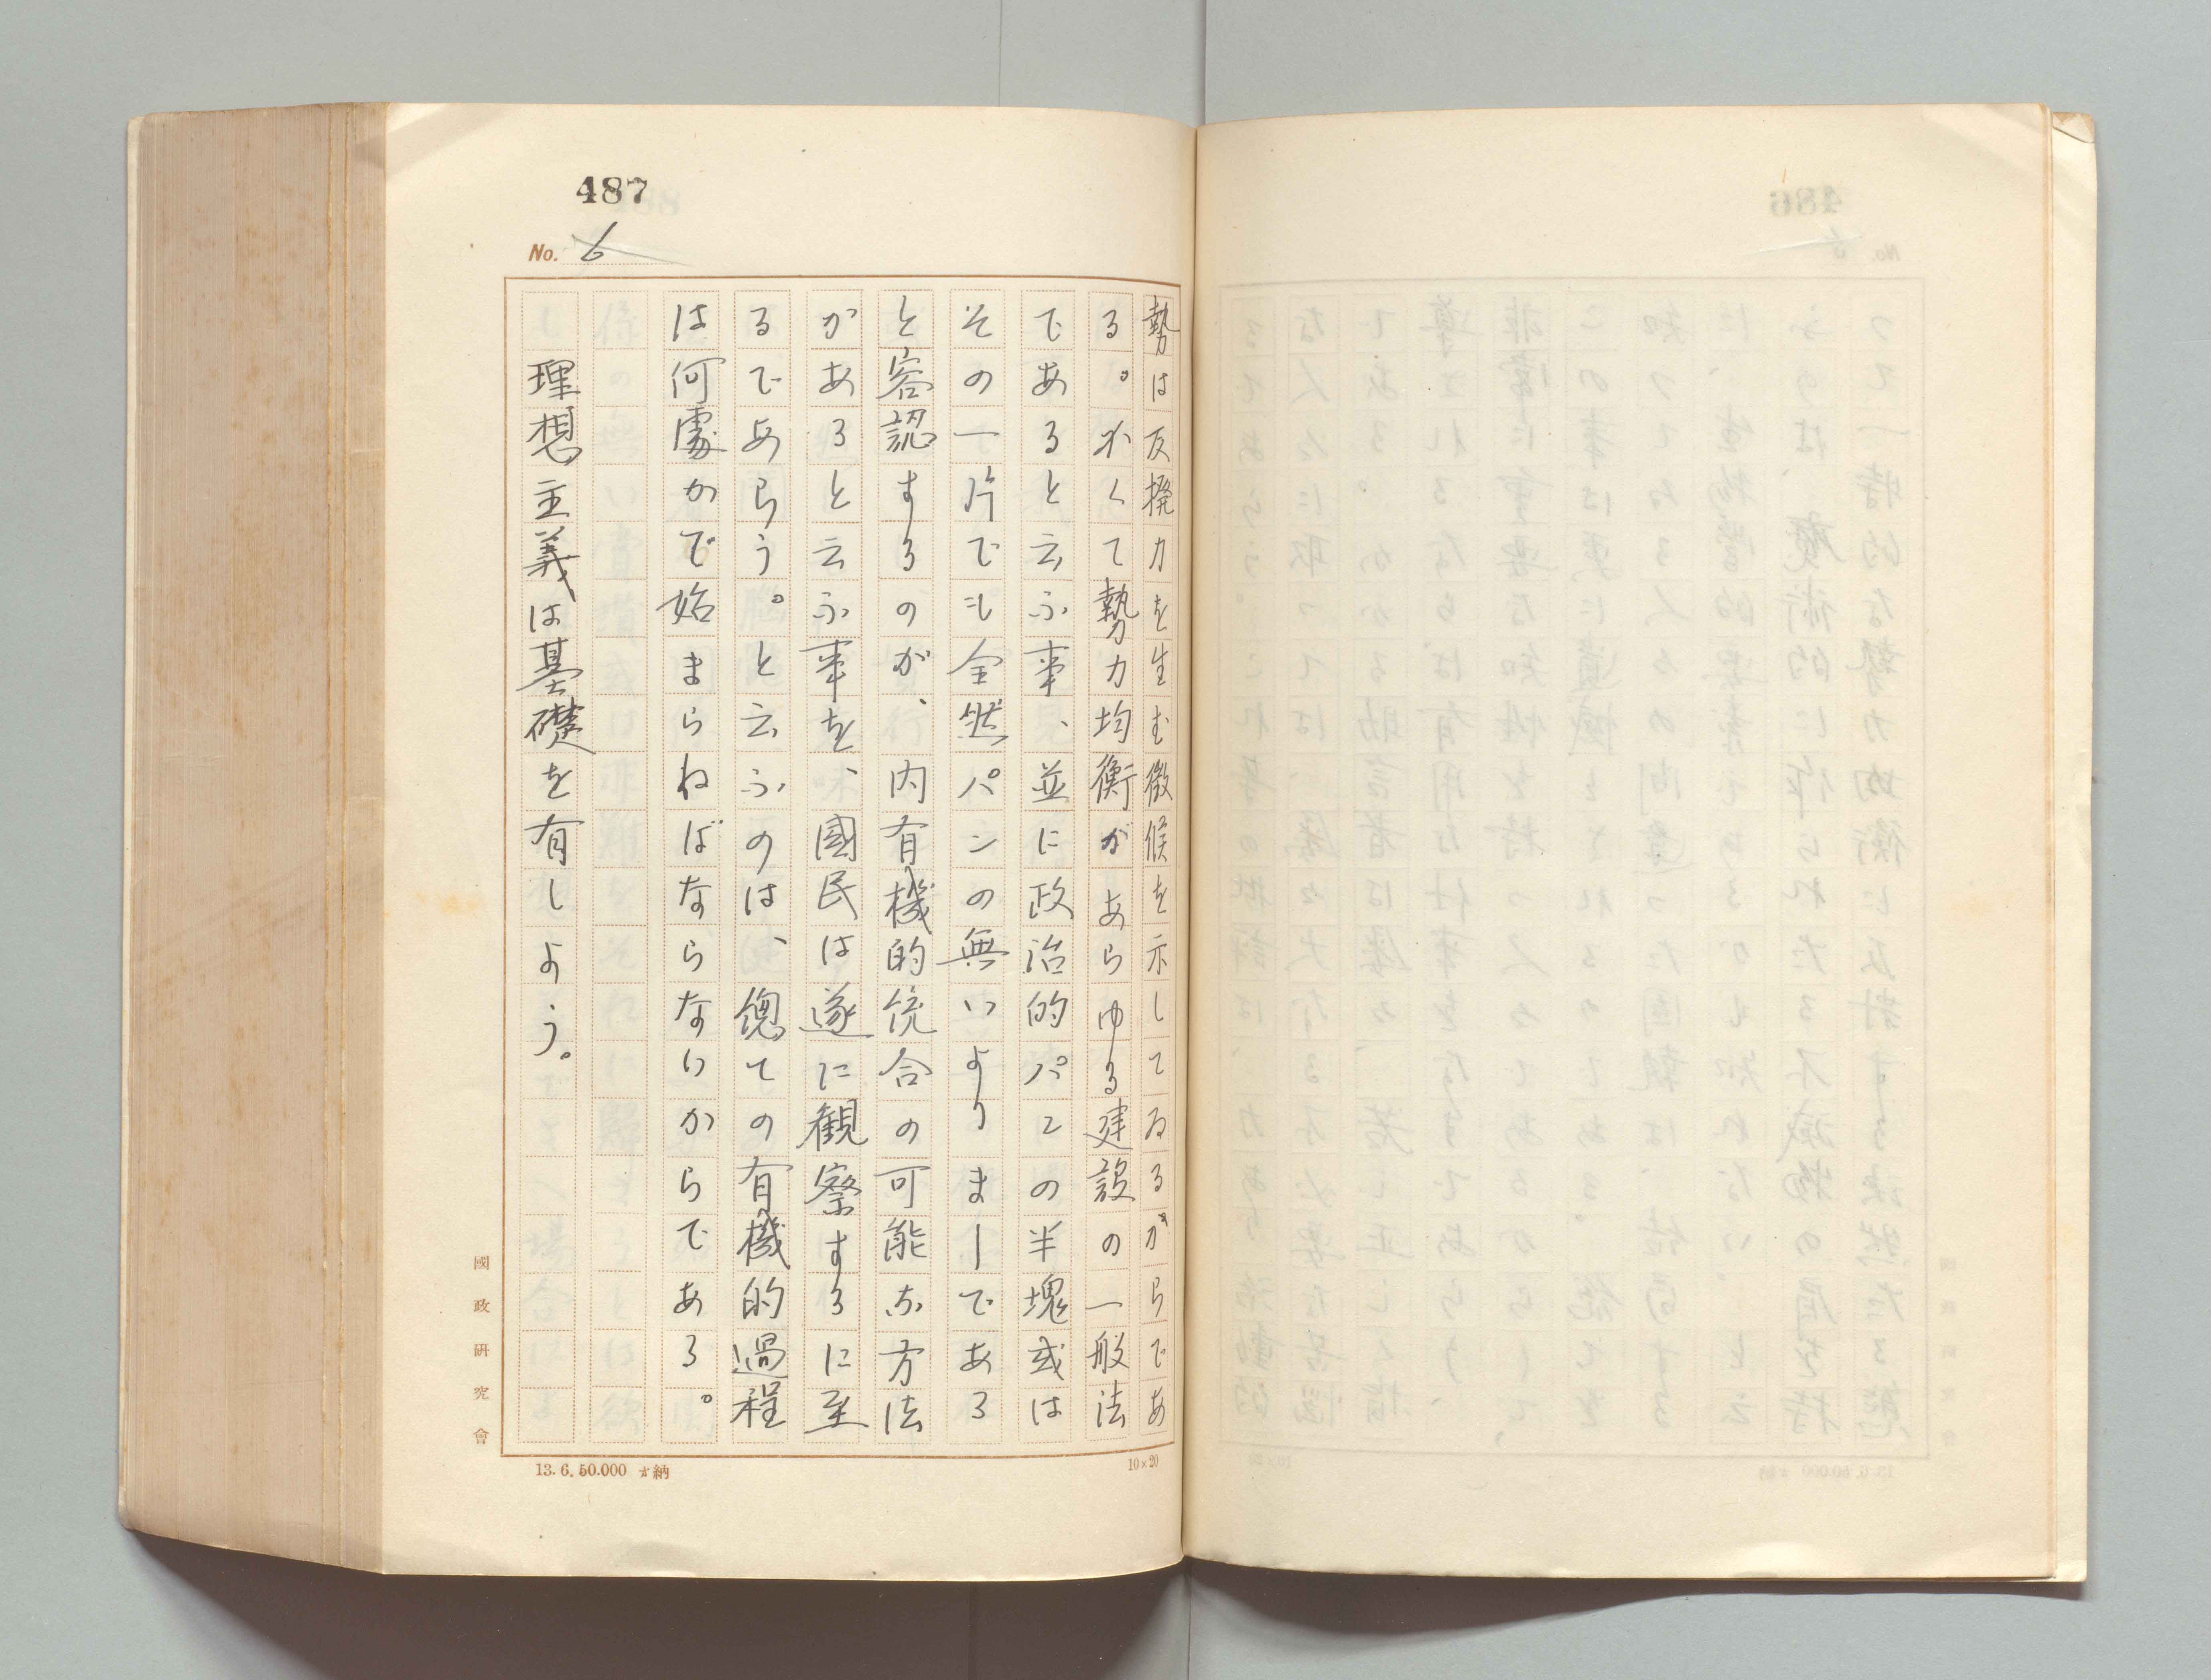 487
No. 6
勢は反撥力を生む徴候を示してゐるからであ
る。かくて勢力均衡があらゆる建設の一般法
であると云ふ事、並に政治的パンの半塊或は
その一片でも全然パンの無いよりましである
と容認するのが、内有機的統合の可能な方法
があると云ふ事を、國民は遂に観察するに至
るであらう。と云ふのは、總ての有機的過程
は何處かで始まらねばならないからである。
理想主義は基礎を有しよう。
國政研究會
13.6.50.000 納
10×20